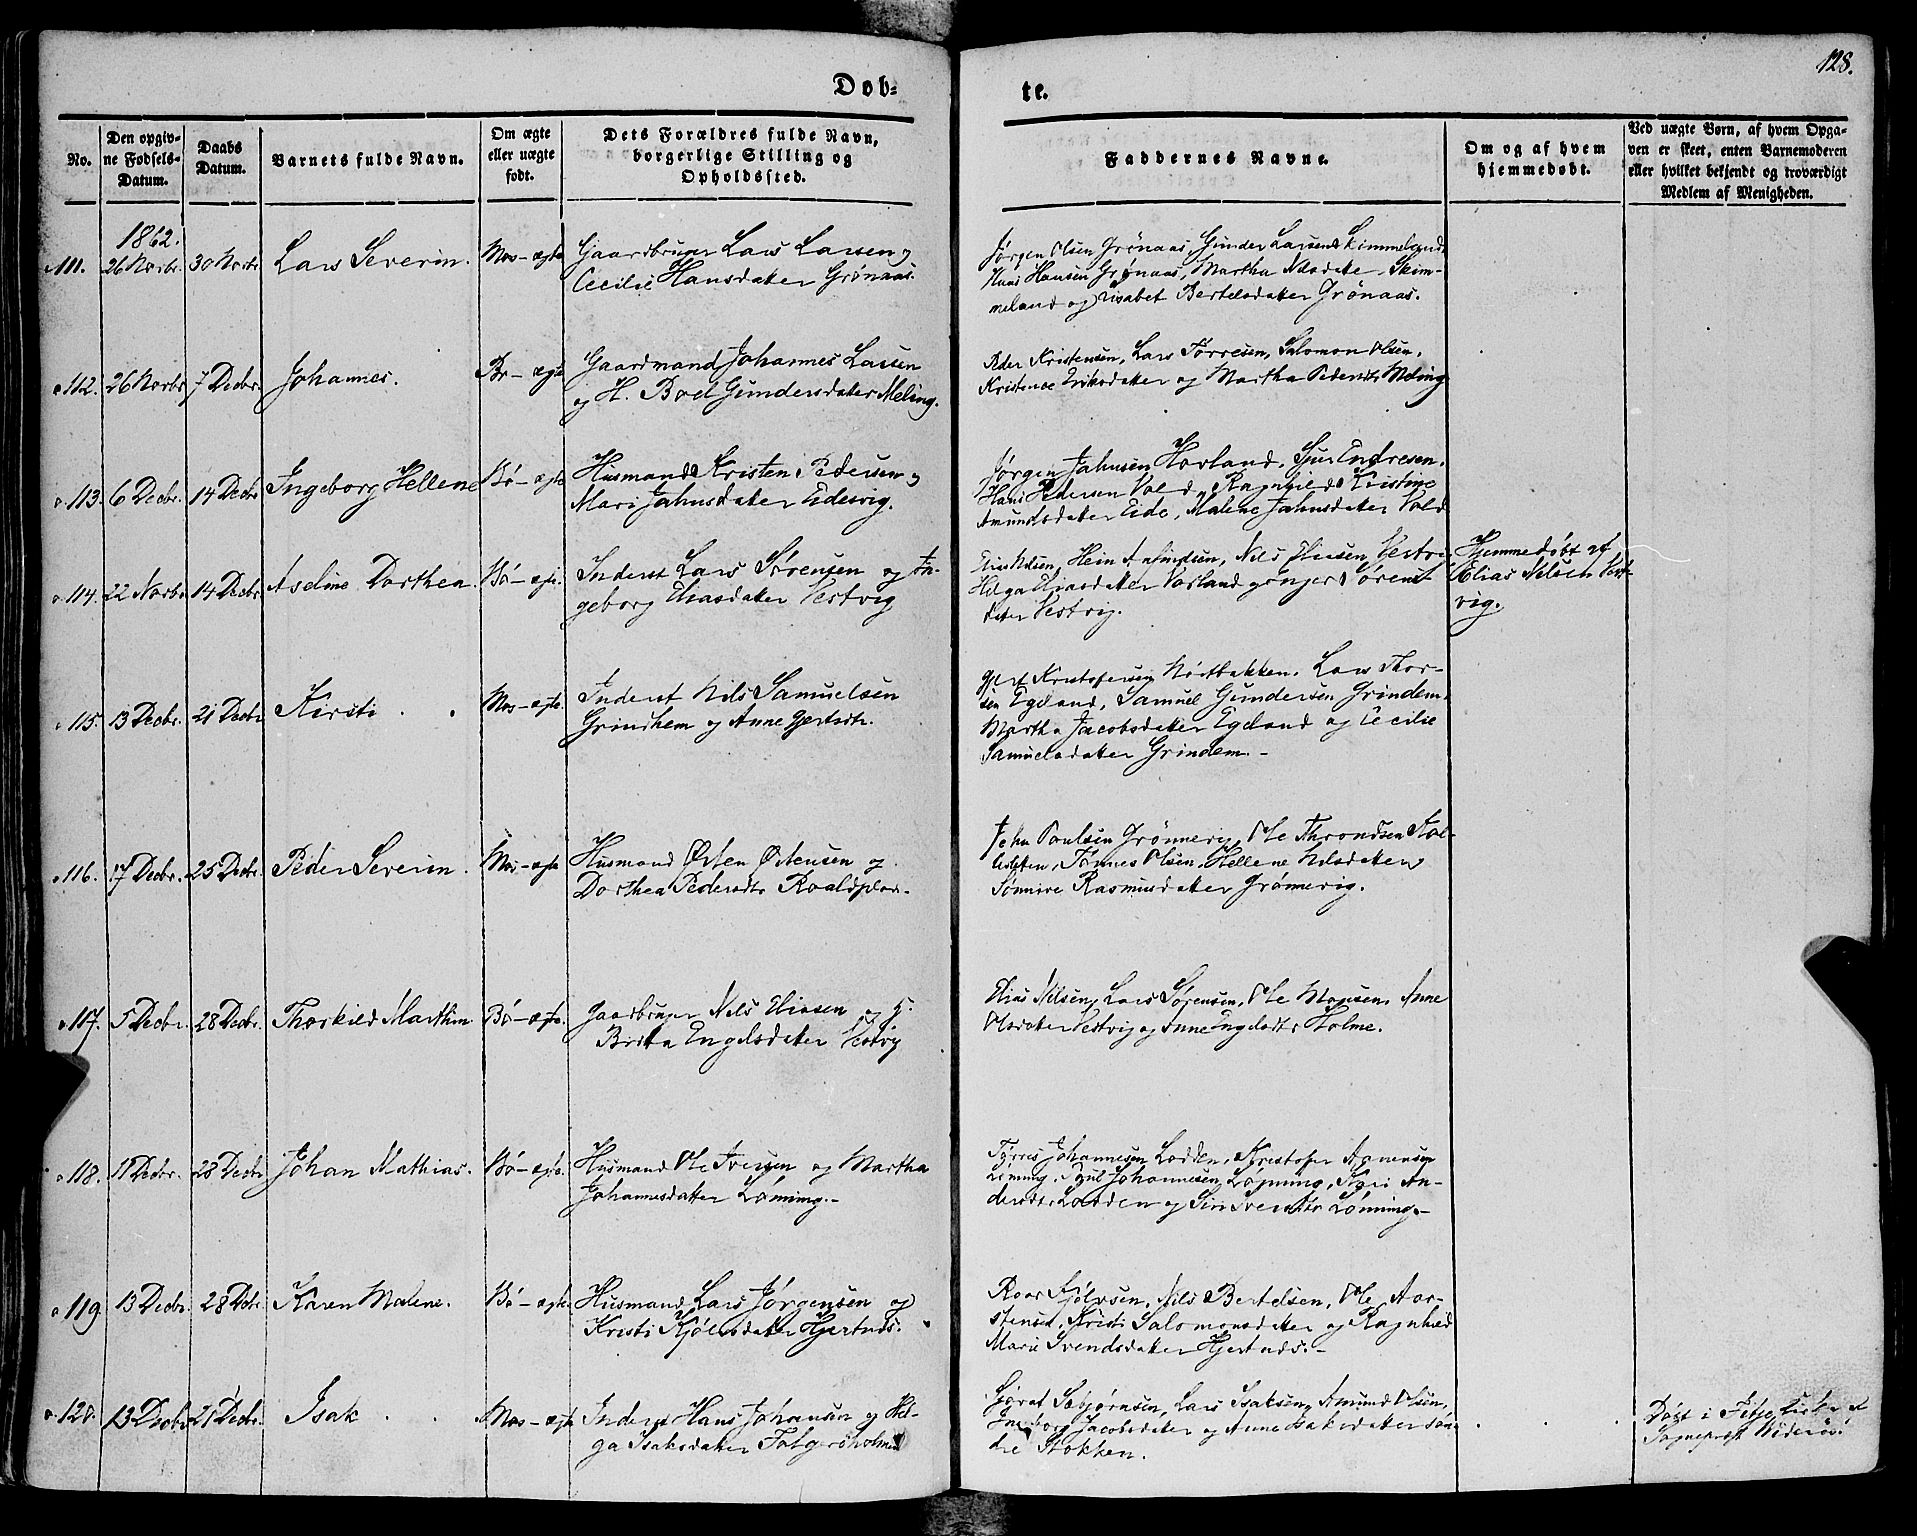 128.
Døb=
te.
No.
Den opgiv-
ne Fødsels-
Datum.
Daabs
Datum.
Barnets fulde Navn.
Om ægte
eller uægte
født.
Dets Forældres fulde Navn,
borgerlige Stilling og
Opholdssted.
Faddernes Navne.
Om og af hvem
hjemmedøbt.
Ved uægte Børn, af hvem Opga-
ven er skeet, enten Barnemoderen
eller hvilket bekjendt og troværdigt
Medlem af Menigheden.
1862.
111. 26 Novbr. 30 Novbr. Lars Severin. Mos- ægte Gaardbruger Lars Larsen og
Cecilie Hansdatter Grønaas.
Jørgen Olsen Grønaas, Gunder Larsen Skimmeland,
Hans Hansen Grønaas, Martha Nilsdatter Skim-
meland og Lisabet Bertelsdatter Grønaas.
112. 26 Novbr 7 Decbr. Johannes. Br- ægte Gaardmand Johannes Larsen
og H. Boel Gundersdatter Meling.
Peder Kristensen, Lars Tørresen, Salomon Olsen,
Kristence Eriksdatter og Martha Pedersdtr Meling
113. 6 Decbr. 14 Decbr Ingeborg Hellene Bø- ægte Husmand Kristen Pedersen og
Mari Jahnsdatter Eidesvig.
Jørgen Jahnsen Hovland, Sjur Endresen,
Hans Pedersen Vold, Ragnhild Kristine
Amundsdatter Eide, Malene Jahnsdatter Vold
114. 22 Novbr 14 Decbr Aseline Dorthea Bø- ægte. Inderst Lars Sørensen og In-
geborg Eliasdatter Vestvig
Elias Nilsen, Hein Asmundsen, Nils Eliesen Vestvig
Helga Eliasdatter Vorland Sørens-
datter Vestvig.
Hjemmedøbt af
Elias Nilsen Vest-
vig.
115. 13 Decbr. 21 Decbr Kirsti . . Mos- ægte. Inderst Nils Samuelsen
Grindhem og Anne Gertsdtr.
Gjert Kristofersen Nörtbakken, Lars Thor-
sen Egeland, Samuel Gundersen Grindem,
Martha Jacobsdatter Egeland og Cecilie
Samuelsdatter Grindem.-
116. 17 Decbr. 25 Decbr. Peder Severin. Mos- ægte Husmand Østen Østensen og
Dorthea Pedersdtr Roaldplads.
John Poulsen Grönnevig, Ole Throndsen
Tönnes Olsen, Hellene Nilsdatter og
Sönnive Rasmusdatter Grönnevig.
117. 5 Decbr. 28 Decbr. Thorkild Marthin Bø- ægte. Gaardbruger Nils Eliasen og H.
Britta Engelsdatter Vestvig
Elias Nilsen, Lars Sørensen, Ole Monsen, Anne
Olsdatter Vestvig og Anne Engelsdtr Holme.
118. 11 Decbr. 28 Decbr Johan Mathias. Bø- ægte. Husmand Ole Iversen og Martha
Johannesdatter Lönning.-
Tørres Johannesen Lodden, Kristofer
Lönning, Johannesen Lönning, Kari An-
dersdtr. Lodden og Siri Iversdtr Lönning.-
119. 13 Decbr. 28 Decbr. Karen Malene. Bø- ægte. Husmand Lars Jörgensen og
Kristi Kjölvsdatter Hjertnæs.
Roar Kjölvsen, Nils Bertelsen, Ole Aar-
stensen, Kristi Salomonsdatter og Ragnhild
Marie Svendsdatter Hjertnæs.-
120. 13 Decbr 21 Decbr. Isak . . Mos- ægte Inderst Hans Johansen og Hel-
ga Isaksdatter Folgeröholmen
Sjovat Sæbjørnsen, Lars Isaksen, Amund Olsen,
Ingeborg Jacobsdatter og Anne Isaksdatter Søn-
dre Stokken.
Döbt i Fitje Kirke af
Sognepræst Wideröe.